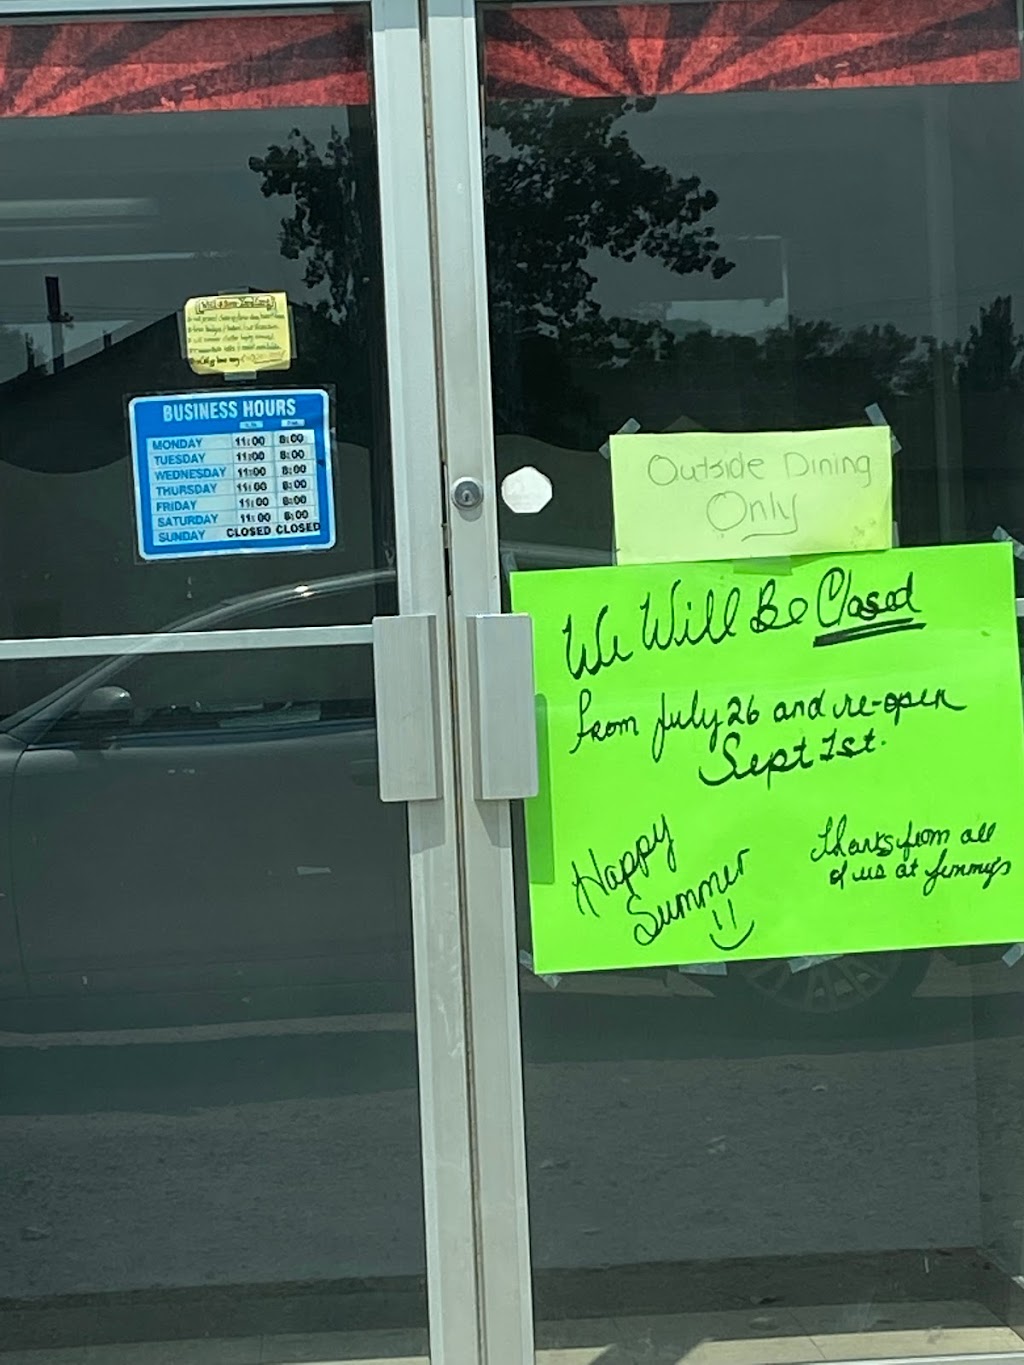 BUSINESS HOURS
MONDAY 11:00 8:00
TUESDAY 11:00 8:00
WEDNESDAY 11:00 8:00
THURSDAY 11:00 8:00
FRIDAY 11:00 8:00
SATURDAY 11:00 8:00
SUNDAY CLOSED CLOSED
Outside Dining
Only
We Will Be Closed
from July 26 and re-open
Sept 1st.
Happy
Summer
Thanks from all
of us at Jimmy's